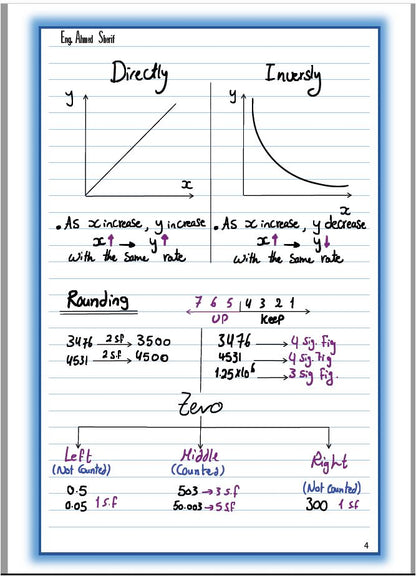 Eng. Ahmed Sherif
Directly
Inversly
y
x
y
x
• As x increase, y increase
x↑ → y↑
with the same rate
• As x increase, y decrease
x↑ → y↓
with the same rate
Rounding
7 6 5 | 4 3 2 1
UP
Keep
3476 2 s.f → 3500
4531 2 s.f → 4500
3476 → 4 sig. fig
4531 → 4 sig. fig
1.25x10⁶ → 3 sig fig.
Zero
Left
(Not Counted)
0.5
0.05 1 s.f
Middle
(Counted)
503 → 3 s.f
50.003 → 5 s.f
Right
(Not Counted)
300 1 s.f
4